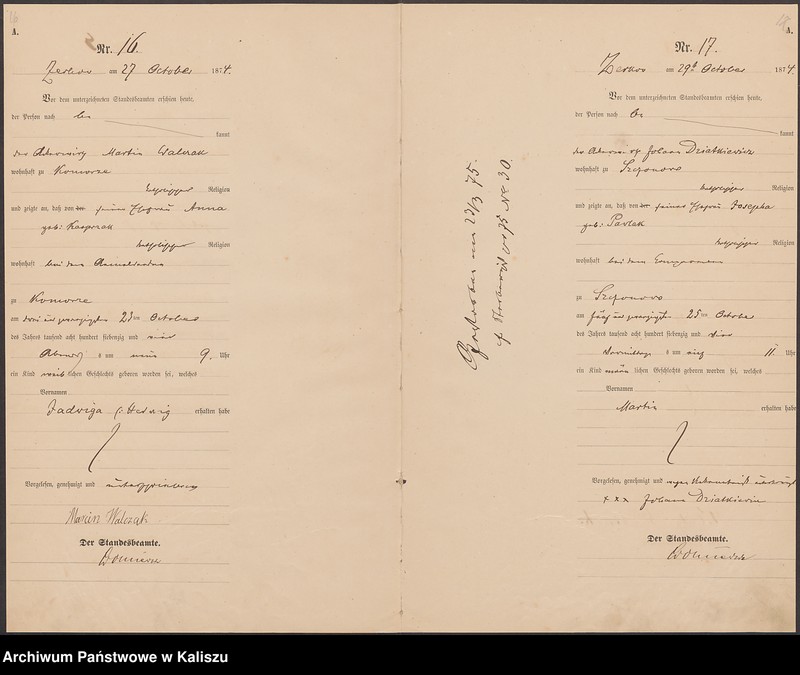 A.
Nr. 16.
Zerkow am 27 October 1874.
Vor dem unterzeichneten Standesbeamten erschien heute,
der Person nach be
kannt
der Martin Walczak
wohnhaft zu Komorze
katholischer Religion
und zeigte an, daß von seiner Ehefrau Anna
geb: Kasprzak
katholischer Religion
wohnhaft bei dem
zu Komorze
am drei und zwanzigsten 23ten October
des Jahres tausend acht hundert siebenzig und vier
Abends um neun 9. Uhr
ein Kind weiblichen Geschlechts geboren worden sei, welches
Vornamen
Jadwiga Hedwig erhalten habe
Vorgelesen, genehmigt und unterschrieben
Marcin Walczak
Der Standesbeamte.
Gestorben am 23/3 75.
cf. Sterberegister 75 No 30
A.
Nr. 17.
Zerkow am 29t October 1874.
Vor dem unterzeichneten Standesbeamten erschien heute,
der Person nach be
kannt
der Johann Dziatkiewicz
wohnhaft zu
katholischer Religion
und zeigte an, daß von seiner Ehefrau Josepha
geb: Pawlak
katholischer Religion
wohnhaft bei dem
zu
am fünf und zwanzigsten 25ten October
des Jahres tausend acht hundert siebenzig und vier
Vormittags um elf 11 Uhr
ein Kind männlichen Geschlechts geboren worden sei, welches
Vornamen
Martin erhalten habe
Vorgelesen, genehmigt und wegen
+ + + Johann Dziatkiewicz
Der Standesbeamte.
Archiwum Państwowe w Kaliszu